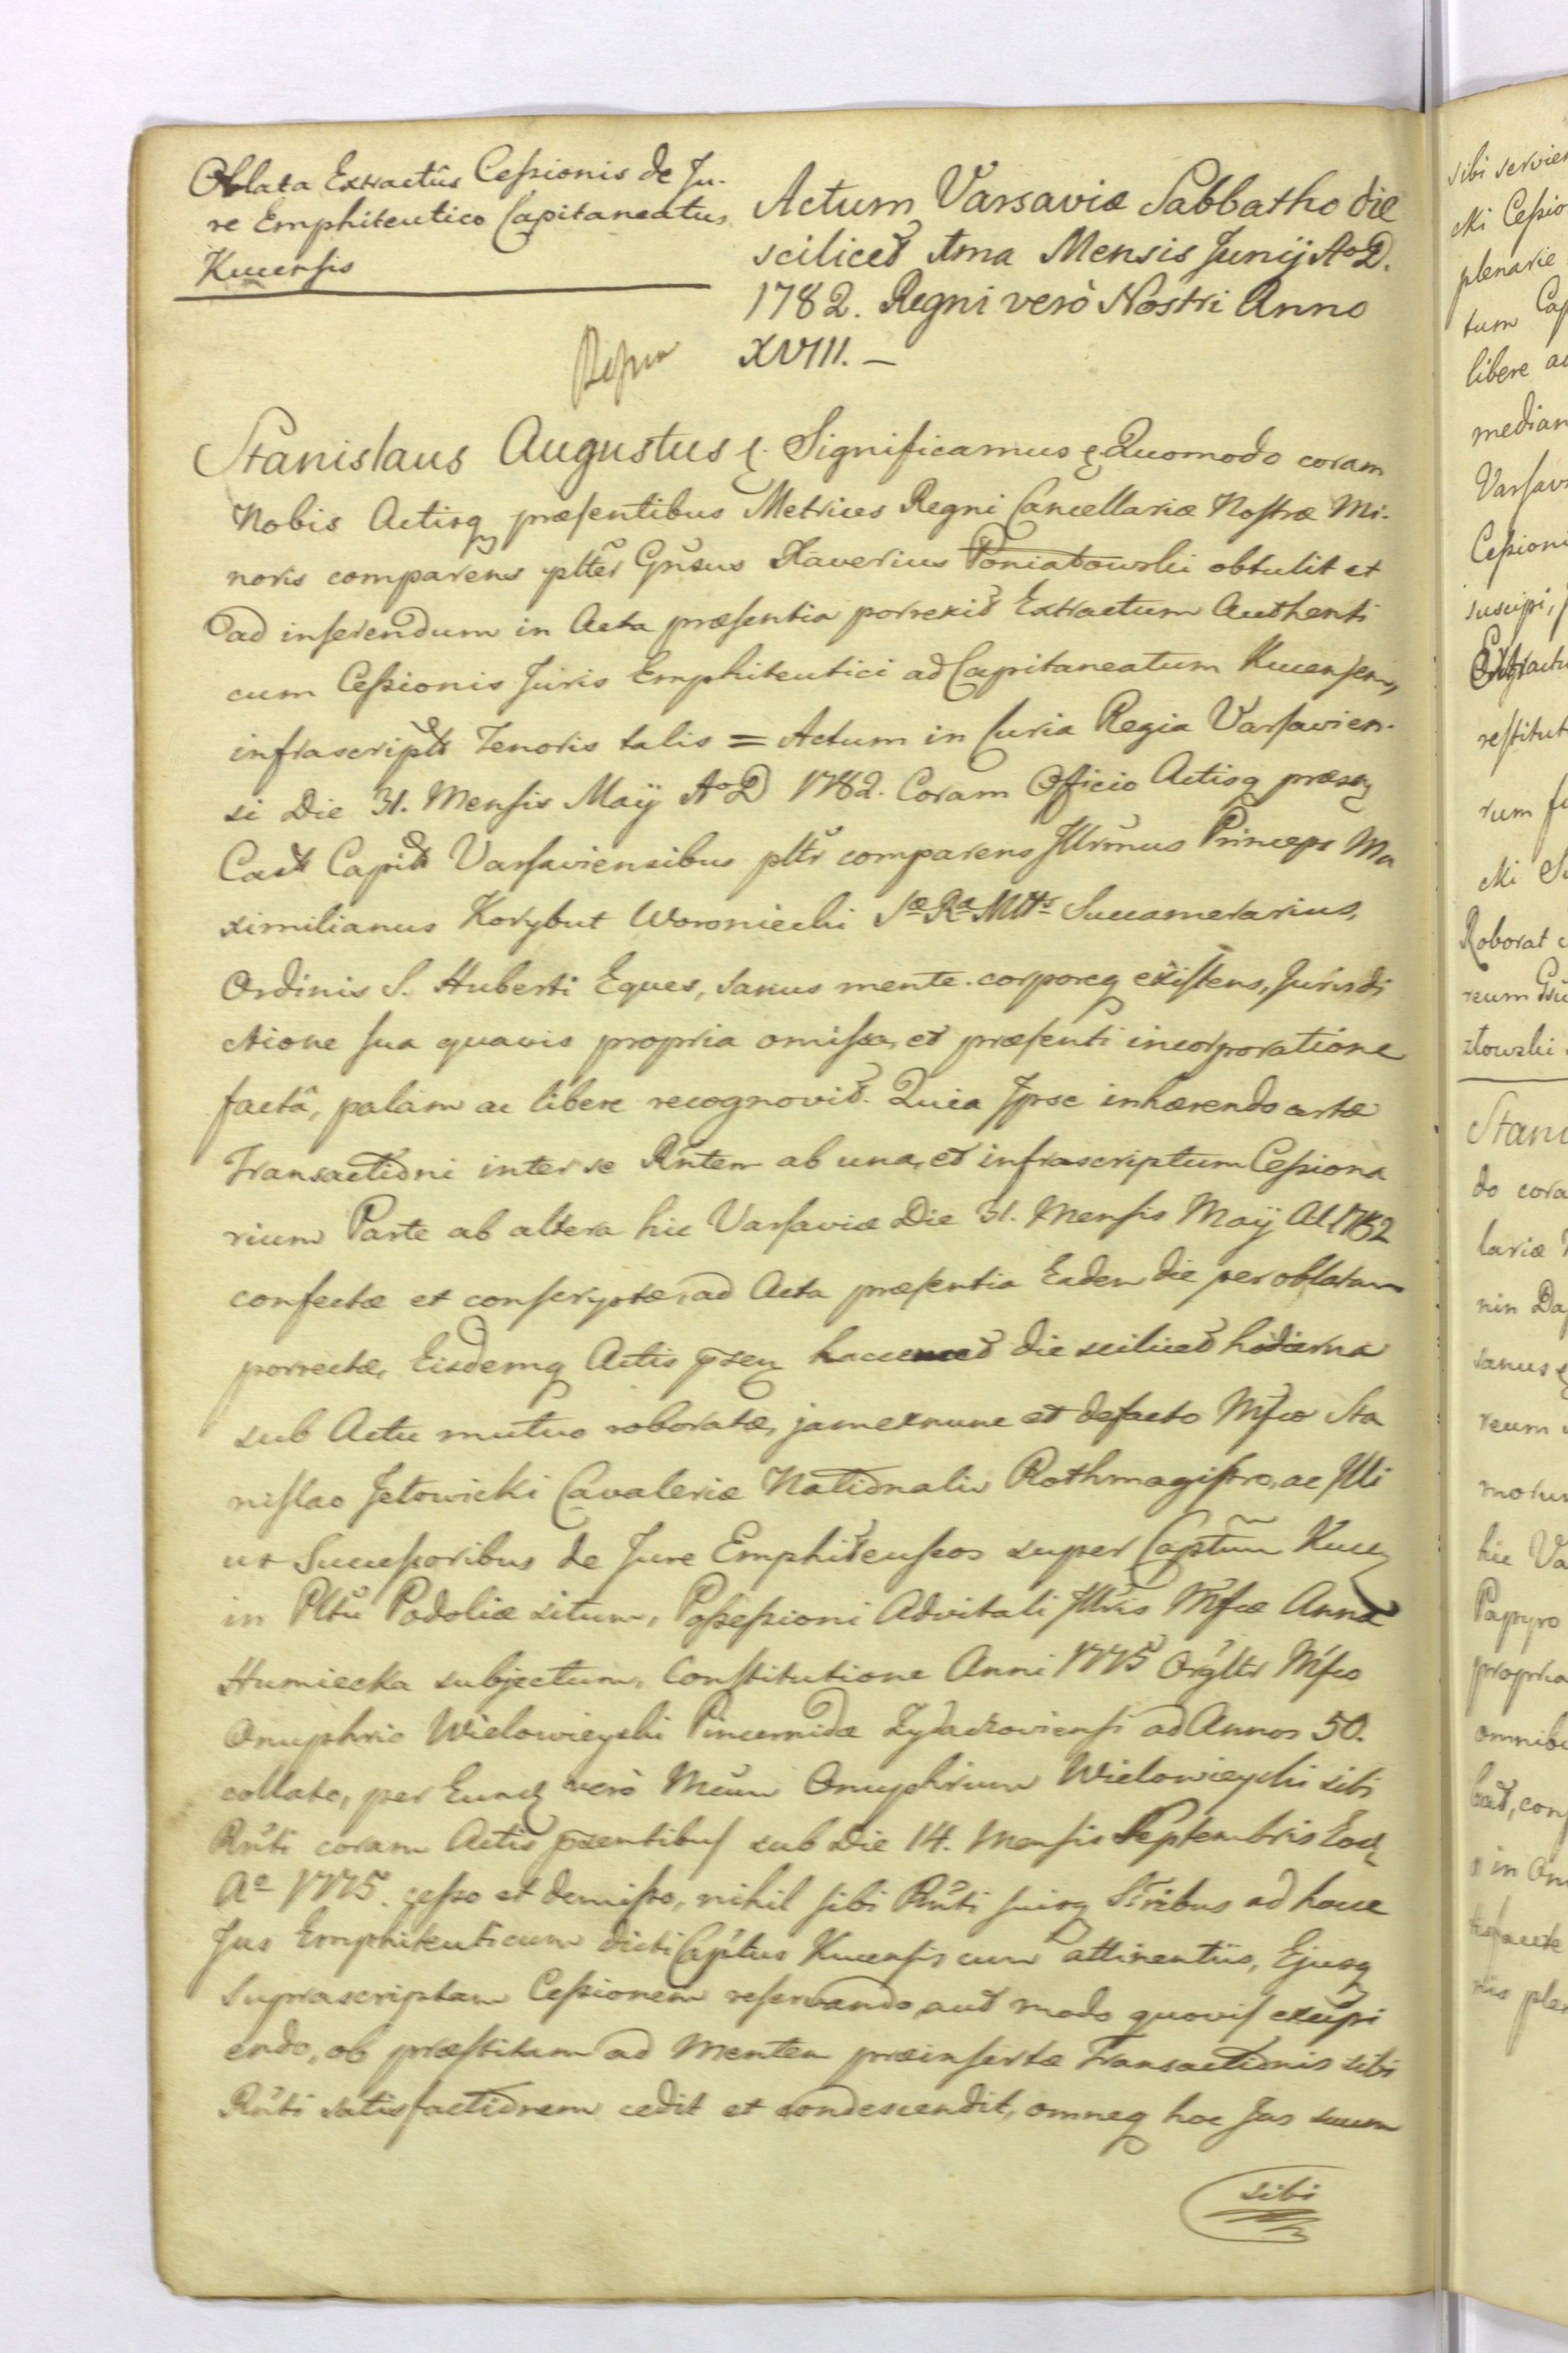 Oblata Extractûs Cessionis de Ju-
re Emphiteutico Capitaneatus
Kucensis
Actum Varsaviæ Sabbatho die
scilicet 1ma Mensis Junij Ao D.
1782. Regni verò Nostri Anno
XVIII. –
Stanislaus Augustus &. Significamus & Quomodo coram
Nobis Actisq præsentibus Metrices Regni Cancellariæ Nostræ Mi-
noris comparens plter Gnsus Xaverius Poniatowski obtulit et
ad inserendum in Acta præsentia porrexit Extractum Authenti
cum Cessionis Juris Emphiteutici ad Capitaneatum Kucensem,
infrascripti Tenoris talis = Actum in Curia Regia Varsavien-
si Die 31. Mensis Maÿ Ao D 1782. Coram Officio Actisq præsz
Cast Capit Varsaviensibus pltr comparens Jllrmus Princeps Ma
ximilianus Korybut Woroniecki Sæ Ræ Mtts Succamerarius,
Ordinis S. Huberti Eques, sanus mente corporeq existens, Jurisdi
ctione sua quavis propria omissa, et præsenti incorporatione
factâ, palam ac libere recognovit. Quia Jpse inhærendo certæ
Transactioni inter se Rntem ab una, et infrascriptum Cessiona
rium Parte ab altera hic Varsaviæ Die 31. Mensis Maÿ A 1782
confectæ et conscryptæ, ad Acta præsentia Eadem die per oblatam
porrectæ, Eisdemq Actis psez die scilicet hodierna
sub Actu mutuo roboratæ, jamexnunc et defacto Mfco Sta
nislao Jełowicki Cavaleriæ Nationalis Rothmagistro, ac Jlli
us Successoribus de Jure Emphiteuseos super Captum Kucz
in Pltu Podoliæ situm, Possessioni Advitali Jllris Mfcæ Annæ
Humiecka subjectum, Constitutione Anni 1775 Orgltr Mfco
Onuphrio Wielowieyski Pincernidæ Zydaczoviensi ad Annos 50.
collato, per Eundz verò Mcum Onuphrium Wielowieyski sibi
Rnti coram Actis psentibus sub Die 14. Mensis Septembris Eodz
Ao 1775. cesso et demisso, nihil sibi Rnti suisq Sribus ad hocce
Jus Emphiteuticum dicti Captus Kucensis cum attinentiis, Ejusq
Suprascriptam Cessionem reservando, aut modo quovis excipi
endo, ob præstitam ad Mentem præinsertæ Transactionis sibi
Rnti satisfactionem cedit et condescendit, omneq hoc Jus suum
sibi
sibi servien
cki Cessio
plenarie
tum Cap
libere ac
median
Varsav
Cession
suscipi,
Extractu
restitut
rum
cki
Roborat
reum
towski
Stani
do cora
lariæ
nin Da
sanus
reum
motum
hic Va
Papyro
propria
omnibu
bat, con
in
ris plen